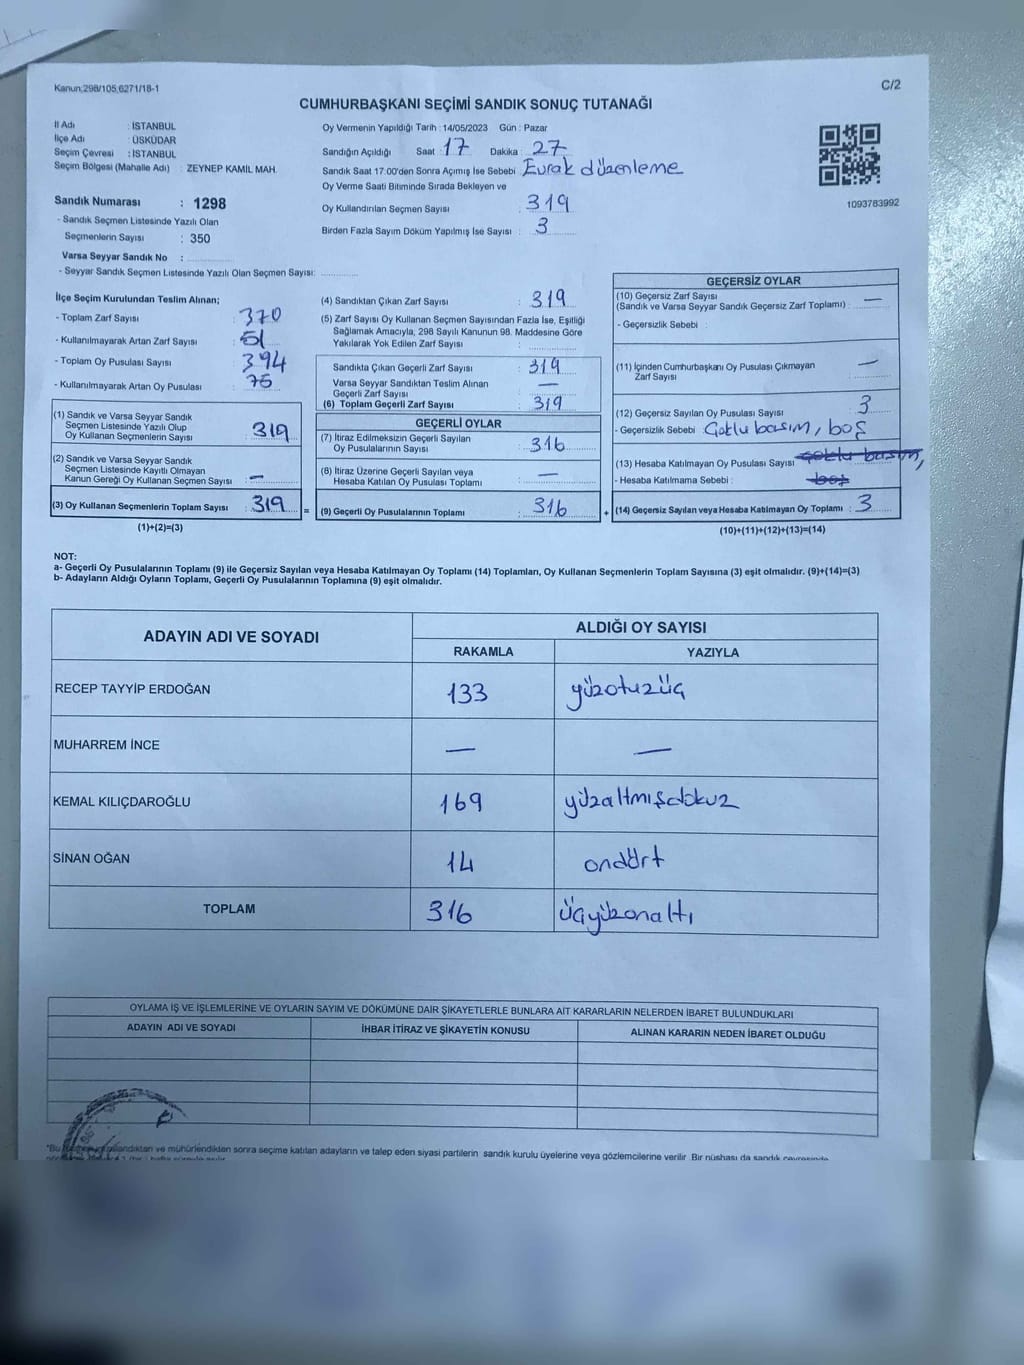 Kanun;298/105,6271/18-1
C/2
CUMHURBAŞKANI SEÇİMİ SANDIK SONUÇ TUTANAĞI
İl Adı : İSTANBUL
İlçe Adı : ÜSKÜDAR
Seçim Çevresi : İSTANBUL
Seçim Bölgesi (Mahalle Adı) : ZEYNEP KAMİL MAH.
Sandık Numarası : 1298
- Sandık Seçmen Listesinde Yazılı Olan
Seçmenlerin Sayısı : 350
Varsa Seyyar Sandık No :
- Seyyar Sandık Seçmen Listesinde Yazılı Olan Seçmen Sayısı:
Oy Vermenin Yapıldığı Tarih : 14/05/2023 Gün : Pazar
Sandığın Açıldığı Saat : 17 Dakika : 27
Sandık Saat 17:00'den Sonra Açımış İse Sebebi : Evrak düzenleme
Oy Verme Saati Bitiminde Sırada Bekleyen ve
Oy Kullandırılan Seçmen Sayısı : 319
Birden Fazla Sayım Döküm Yapılmış İse Sayısı : 3
1093783992
İlçe Seçim Kurulundan Teslim Alınan;
- Toplam Zarf Sayısı : 370
- Kullanılmayarak Artan Zarf Sayısı : 51
- Toplam Oy Pusulası Sayısı : 394
- Kullanılmayarak Artan Oy Pusulası : 75
(1) Sandık ve Varsa Seyyar Sandık
Seçmen Listesinde Yazılı Olup
Oy Kullanan Seçmenlerin Sayısı : 319
(2) Sandık ve Varsa Seyyar Sandık
Seçmen Listesinde Kayıtlı Olmayan
Kanun Gereği Oy Kullanan Seçmen Sayısı : —
(3) Oy Kullanan Seçmenlerin Toplam Sayısı : 319
(1)+(2)=(3)
(4) Sandıktan Çıkan Zarf Sayısı : 319
(5) Zarf Sayısı Oy Kullanan Seçmen Sayısından Fazla İse, Eşitliği
Sağlamak Amacıyla, 298 Sayılı Kanunun 98. Maddesine Göre
Yakılarak Yok Edilen Zarf Sayısı :
Sandıkta Çıkan Geçerli Zarf Sayısı : 319
Varsa Seyyar Sandıktan Teslim Alınan
Geçerli Zarf Sayısı : —
(6) Toplam Geçerli Zarf Sayısı : 319
GEÇERLİ OYLAR
(7) İtiraz Edilmeksizin Geçerli Sayılan
Oy Pusulası Sayısı : 316
(8) İtiraz Üzerine Geçerli Sayılan veya
Hesaba Katılan Oy Pusulası Toplamı : —
= (9) Geçerli Oy Pusulalarının Toplamı : 316
GEÇERSİZ OYLAR
(10) Geçersiz Zarf Sayısı
(Sandık ve Varsa Seyyar Sandık Geçersiz Zarf Toplamı) : —
- Geçersizlik Sebebi :
(11) İçinden Cumhurbaşkanı Oy Pusulası Çıkmayan
Zarf Sayısı : —
(12) Geçersiz Sayılan Oy Pusulası Sayısı : 3
- Geçersizlik Sebebi : Çoklu basım, boş
(13) Hesaba Katılmayan Oy Pusulası Sayısı : çoklu basım,
- Hesaba Katılmama Sebebi : boş
+ (14) Geçersiz Sayılan veya Hesaba Katılmayan Oy Toplamı : 3
(10)+(11)+(12)+(13)=(14)
NOT:
a- Geçerli Oy Pusulalarının Toplamı (9) ile Geçersiz Sayılan veya Hesaba Katılmayan Oy Toplamı (14) Toplamları, Oy Kullanan Seçmenlerin Toplam Sayısına (3) eşit olmalıdır. (9)+(14)=(3)
b- Adayların Aldığı Oyların Toplamı, Geçerli Oy Pusulalarının Toplamına (9) eşit olmalıdır.
ADAYIN ADI VE SOYADI
ALDIĞI OY SAYISI
RAKAMLA YAZIYLA
RECEP TAYYİP ERDOĞAN 133 yüzotuzüç
MUHARREM İNCE — —
KEMAL KILIÇDAROĞLU 169 yüzaltmışdokuz
SİNAN OĞAN 14 ondört
TOPLAM 316 üçyüzonaltı
OYLAMA İŞ VE İŞLEMLERİNE VE OYLARIN SAYIM VE DÖKÜMÜNE DAİR ŞİKAYETLERLE BUNLARA AİT KARARLARIN NELERDEN İBARET BULUNDUKLARI
ADAYIN ADI VE SOYADI İHBAR İTİRAZ VE ŞİKAYETİN KONUSU ALINAN KARARIN NEDEN İBARET OLDUĞU
"Bu ve mühürlendikten sonra seçime katılan adayların ve talep eden siyasi partilerin sandık kurulu üyelerine veya gözlemcilerine verilir. Bir nüshası da sandık çevresinde